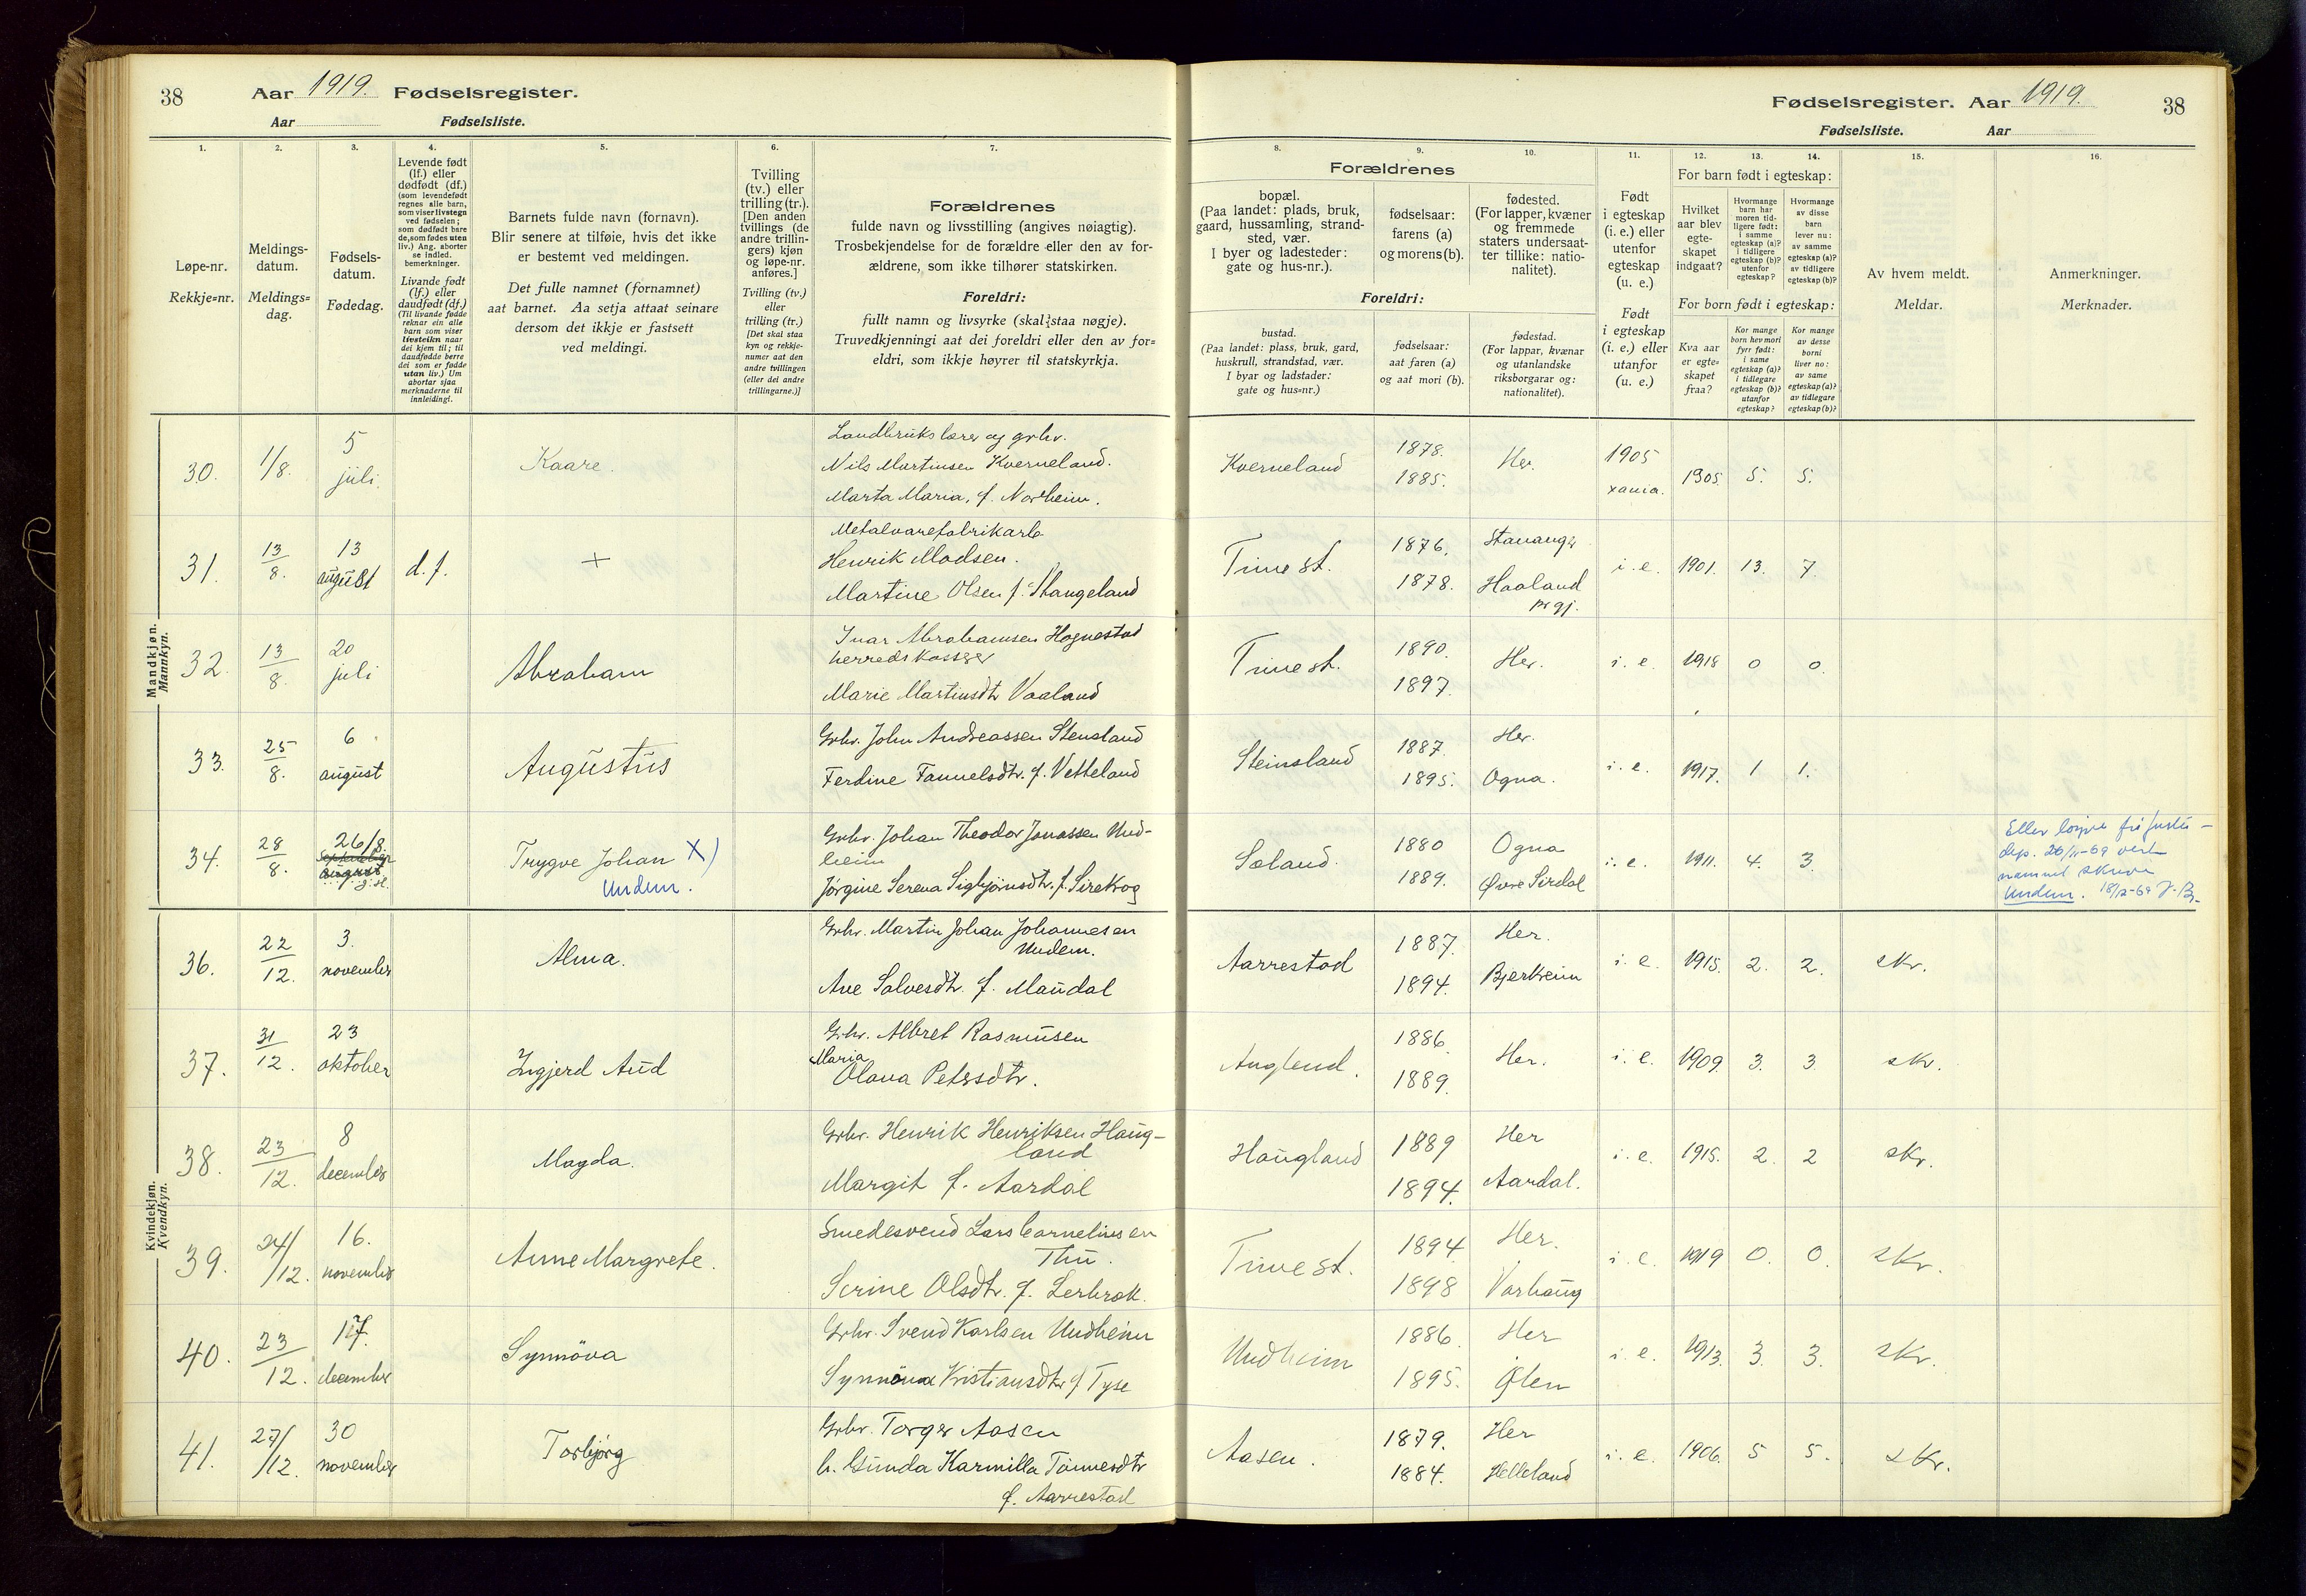 38
Aar 1919. Fødselsregister.
Aar
Fødselsliste.
Fødselsregister. Aar 1919.
38
Fødselsliste. Aar
1.
Løpe-nr.
Rekkje=nr.
2.
Meldings-
datum.
Meldings=
dag.
3.
Fødsels-
datum.
Fødedag.
4.
Levende født
(lf.) eller
dødfødt (df.)
(som levendefødt
regnes alle barn,
som viser livstegn
ved fødselen;
som dødfødt bare
de, som fødes uten
liv.) Ang. aborter
se indled.
bemerkninger.
Livande født
(lf.) eller
daudfødt (df.)
(Til livande fødde
reknar ein alle
barn som viser
livsteikn naar
dei kjem til; til
daudfødde berre
dei som er fødde
utan liv.) Um
abortar sjaa
merknaderne til
innleidingi.
5.
Barnets fulde navn (fornavn).
Blir senere at tilføie, hvis det ikke
er bestemt ved meldingen.
Det fulle namnet (fornamnet)
aat barnet. Aa setja attaat seinare
dersom det ikkje er fastsett
ved meldingi.
6.
Tvilling
(tv.) eller
trilling (tr.).
[Den anden
tvillings (de
andre trillin-
gers) kjøn
og løpe-nr.
anføres.]
Tvilling (tv.)
eller
trilling (tr.)
[Det skal staa
kyn og rekkje-
numer aat den
andre tvillingen
(eller dei andre
trillingarne.)]
7.
Forældrenes
fulde navn og livsstilling (angives nøiagtig).
Trosbekjendelse for de forældre eller den av for-
ældrene, som ikke tilhører statskirken.
Foreldri:
fullt namn og livsyrke (skal staa nøgje).
Truvedkjenningi aat dei foreldri eller den av for=
eldri, som ikkje høyrer til statskyrkja.
Forældrenes
8.
bopæl.
(Paa landet: plads, bruk,
gaard, hussamling, strand-
sted, vær.
I byer og ladesteder:
gate og hus-nr.).
9.
fødselsaar:
farens (a)
og morens (b).
10.
fødested.
(For lapper, kvæner
og fremmede
staters undersaat-
ter tillike: natio-
nalitet).
Foreldri:
bustad.
(Paa landet: plass, bruk, gard,
huskrull, strandstad, vær.
I byar og ladstader:
gate og hus=nr.)
fødselsaar:
aat faren (a)
og aat mori (b).
fødestad.
(For lappar, kvænar
og utanlandske
riksborgarar og:
nationalitet).
11.
Født
i egteskap
(i. e.) eller
utenfor
egteskap
(u. e.)
Født
i egteskap
(i. e.) eller
utanfor
(u. e.)
12.
13.
14.
For barn født i egteskap:
Hvilket
aar blev
egte-
skapet
indgaat?
Hvormange
barn har
moren tid-
ligere født:
i samme
egteskap (a)?
i tidligere
egteskap (b)?
utenfor
egteskap?
Hvormange
av disse
barn
lever nu:
av samme
egteskap (a)?
av tidligere
egteskap (b)?
For born født i egteskap:
Kva aar
er egte=
skapet
fraa?
Kor mange
born hev mori
fyrr født:
i same
egteskap (a)?
i tidlegare
egteskap (b)?
utanfor
egteskap?
Kor mange
av desse
borni
liver no:
av same
egteskap (a)?
av tidlegare
egteskap (b)?
15.
Av hvem meldt.
Meldar.
16.
Anmerkninger.
Merknader.
Mandkjøn.
Mannkyn.
30. 1/8. 5 juli. Kaare.
Landbrukslærer og grbr.
Nils Martinsen Kverneland.
Marta Maria, f. Norheim.
Kverneland 1878. 1885. Her. 1905 xania. 1905 5. 5.
31. 13/8. 13 august d.f. +
Metalvarefabrikarb
Henrik Madsen.
Martine Olsen f. Skangeland
Time st. 1876. 1878. Stavanger Haaland prgj. i. e. 1901. 13. 7.
32. 13/8. 20 juli Abraham
Ivar Abrahamsen Hognestad
herredskasser
Marie Martinsdtr Vaaland
Time st. 1890. 1897. Her. i. e. 1918 0 0.
33. 25/8. 6 august Augustus
Grbr. John Andreassen Stensland
Ferdine Tønnelsdtr. f. Vetteland
Steinsland 1887. 1895. Her. Ogna. i. e. 1917. 1 1.
34. 28/8. 26/8. september august Trygve Johan X)
Undem.
Grbr. Johan Theodor Jonassen Und-
heim
Jørgine Serena Sigbjørnsdtr. f. Sirekrog
Sæland. 1880 1889. Ogna Øvre Sirdal i. e. 1911. 4. 3.
Etter løyve frå Justis-
dep. 26/11-69 vert
namnet skrive
Undem. 18/12-69 J. Br.
Kvindekjøn.
Kvendkyn.
36. 22/12. 3. november Alma.
Grbr. Martin Johan Johannesen
Undem.
Ane Salvesdtr. f. Maudal
Aarrestad 1887. 1894. Her. Bjerkreim i. e. 1915. 2. 2. skr.
37. 31/12. 23 oktober Ingjerd Aud
Grbr. Albret Rasmusen
Maria
Olava Petersdtr.
Anglend. 1886. 1889. Her. i. e. 1909. 3. 3. skr.
38. 23/12. 8 december Magda.
Grbr. Henrik Henriksen Haug-
land
Margit f. Aardal
Haugland 1889 1894. Her Aardal. i. e. 1915. 2. 2 skr.
39. 24/12. 16. november Anne Margrete.
Smedesvend Lars Cornelius en
Thu.
Serine Olsdtr. f. Lerbrek.
Time st. 1894 1898 Her. Varhaug i. e. 1919 0. 0. skr.
40. 23/12. 17. december Synnöva
Grbr. Svend Karlsen Undheim
Synnöva Kristiansdtr f Tyse
Undheim 1886. 1895. Her Ølen i. e. 1913. 3. 3. skr.
41. 27/12. 30 november Torbjørg
Grbr. Torger Aasen
h. Gunda Karmilla Tönnesdtr
f. Aarrestad
Aasen. 1879. 1884. Her Helleland i. e. 1906. 5 5. skr.